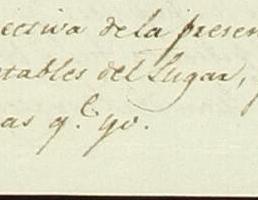 ectiva de la presen
tables del Lugar,
as q.e yo.